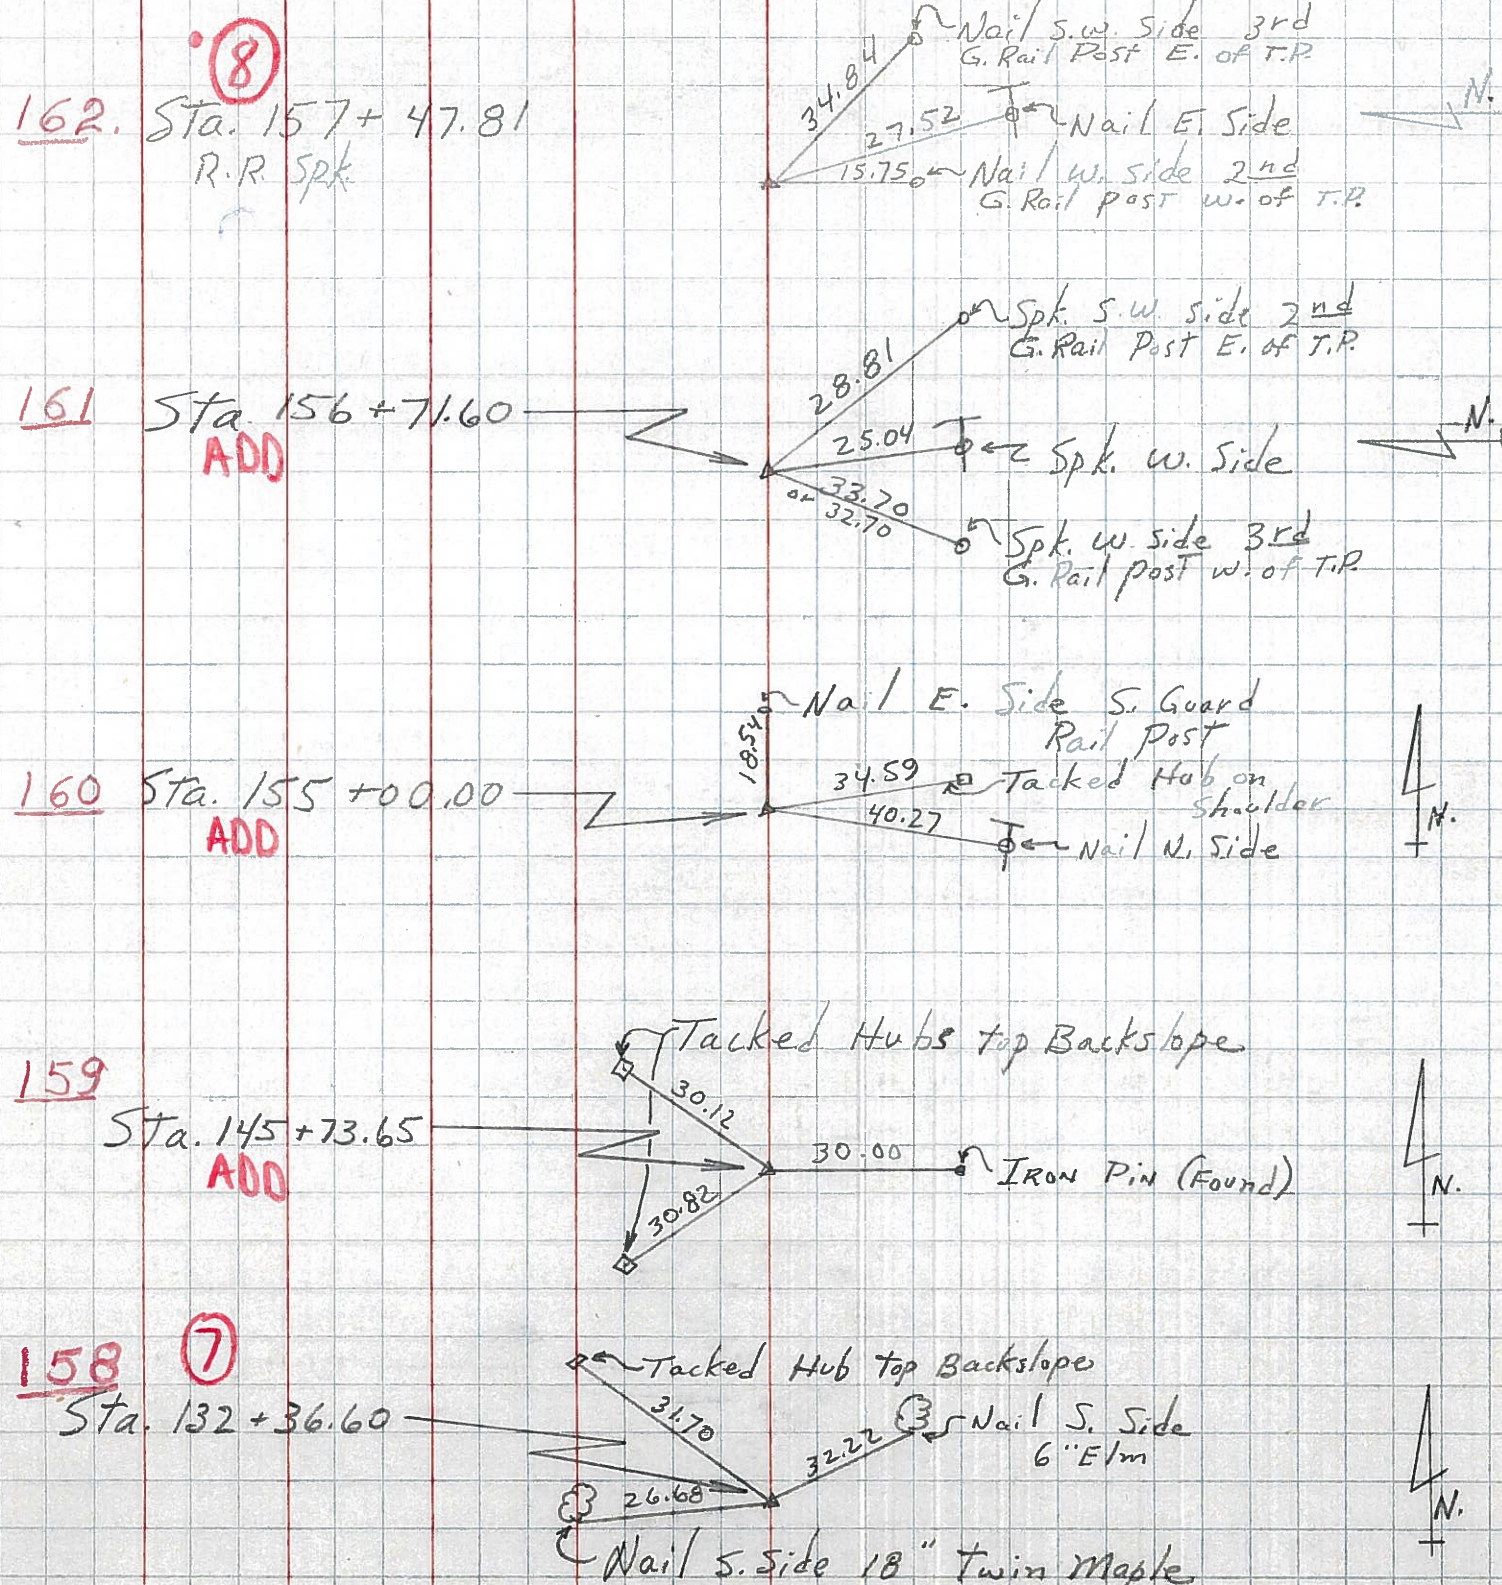 8
162. Sta. 157+ 47.81
R.R. Spk.
34.84
Nail S.W. Side 3rd
G. Rail Post E. of T.P.
27.52
Nail E. Side
15.75
Nail W. Side 2nd
G. Rail post W. of T.P.
N.
161 Sta. 156 +71.60
ADD
28.81
Spk. S.W. Side 2nd
G. Rail Post E. of T.P.
25.04
Spk. W. Side
33.70
or 32.70
Spk. W. Side 3rd
G. Rail post W. of T.P.
N.
160 Sta. 155 +00.00
ADD
18.54
Nail E. Side S. Guard
Rail Post
34.59
Tacked Hub on
Shoulder
40.27
Nail N. Side
N.
159
Sta. 145 +73.65
ADD
Tacked Hubs top Backslope
30.12
30.00
Iron Pin (Found)
30.82
N.
158 7
Sta. 132 +36.60
Tacked Hub top Backslope
31.70
32.22
Nail S. Side
6" Elm
26.68
Nail S. Side 18" Twin Maple
N.